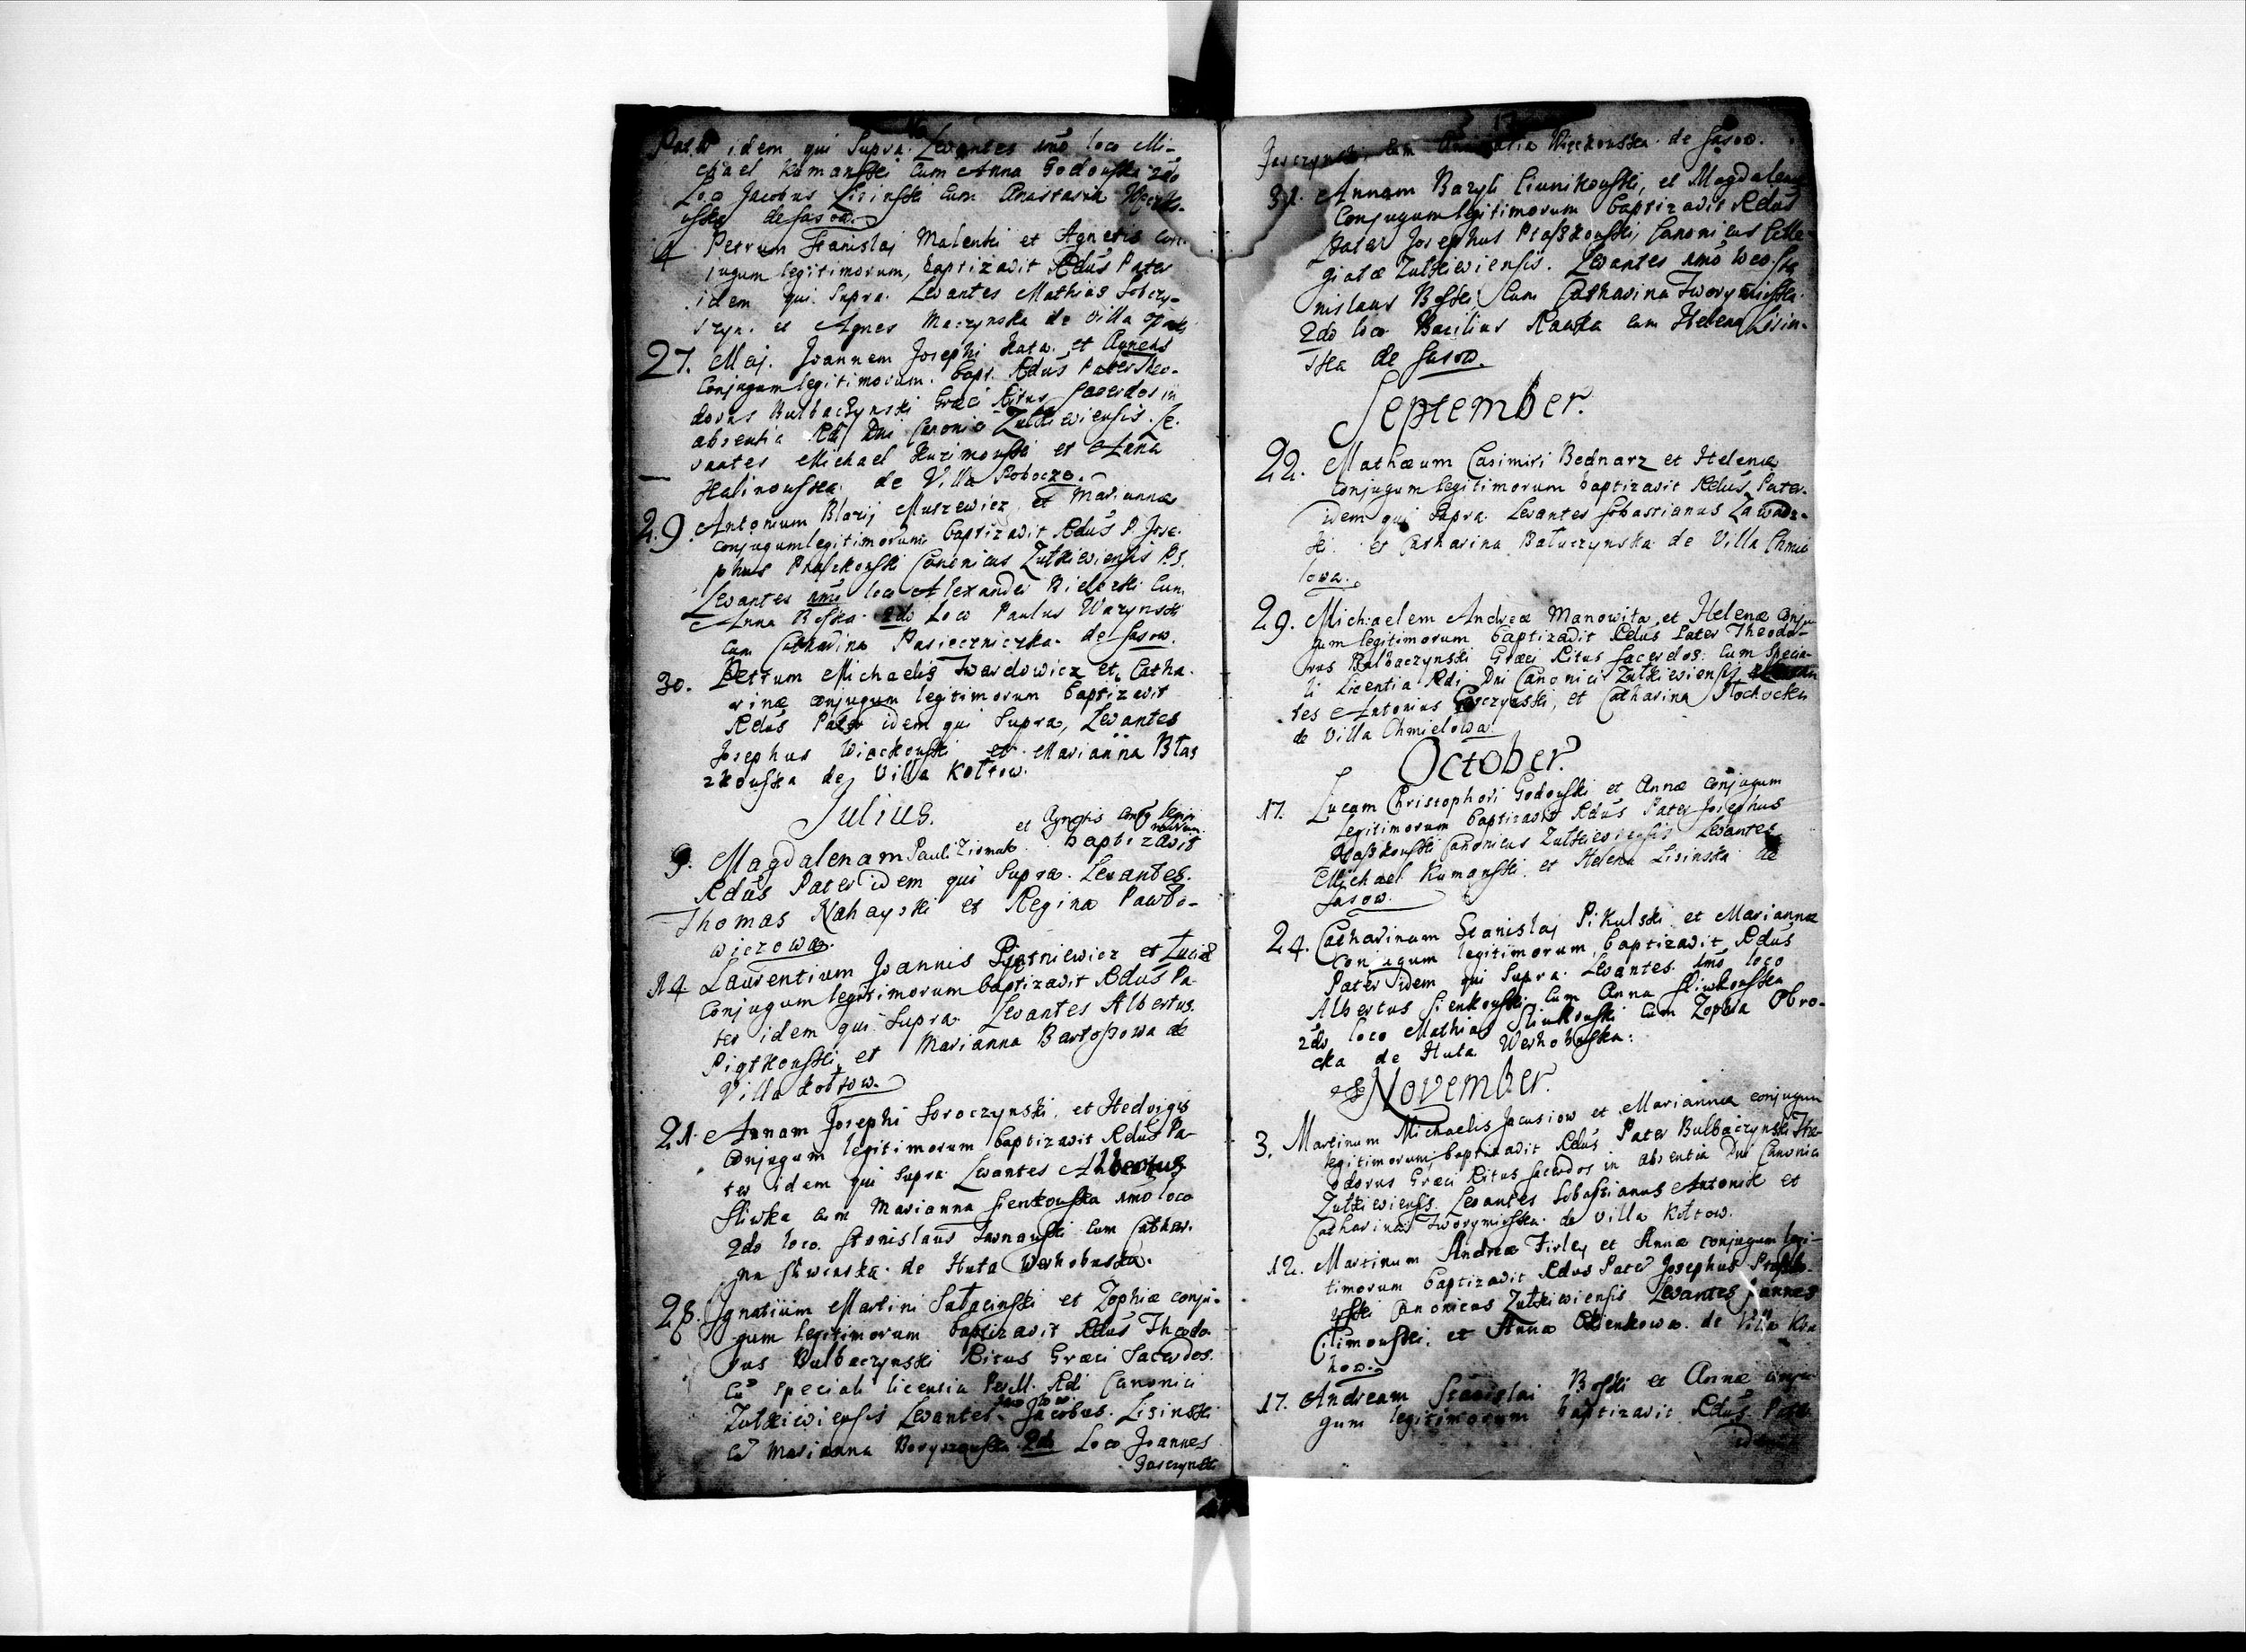 Pater idem qui Supra. Levantes 1mo loco Mi-
chael Kumanski cum Anna Godouska 2do
Loco Jacobus Lisinski cum Anastasia
uska de Sasow.
4 Petrum Stanislai Malenki et Agnetis con-
jugum legitimorum, baptizavit Rdus Pater
idem qui Supra. Levantes Mathias Sobczy-
szyn. et Agnes Maczynska de Villa
27. Maj. Joannem Josephi Kata. et Agnetis
Conjugum legitimorum. bapt. Rdus Pater Theo-
dorus Bulbaczynski Græci Ritus Sacerdos in
absentia Rdi Dni Canonici Zulkiewiensis. Le-
vantes Michael Kuzimouski et Anna
Halinouska. de Villa Pobocze.
29. Antonium Blazij Muszewicz, et Mariannæ
conjugum legitimorum baptizavit Rdus P. Jose-
phus Ptaszkouski Canonicus Zulkiewiensis P.S.
Levantes 1mo loco Alexander Bielezki cum
Anna Boska. 2do Loco Paulus Wazynski
cum Catharina Pasieczniczka. de Sasow.
30. Petrum Michaelis Twardowicz et Catha-
rinæ conjugum legitimorum baptizavit
Rdus Pater idem qui Supra, Levantes
Josephus Wiackouski et Marianna Blas
zkouska de Villa Koltow.
Julius.
et Agnetis conjg legiti
morum.
9. Magdalenam Pauli Zismak. baptizavit
Rdus Pater idem qui Supra. Levantes.
Thomas Nahayski et Regina Pawlo-
wiczowa.
14 Laurentium Joannis Piątniewicz et Luciæ
Conjugum legitimorum baptizavit Rdus Pa-
ter idem qui Supra. Levantes Albertus.
Piątkouski, et Marianna Bartoszowa de
Villa Koltow.
21. Annam Josephi Soroczynski, et Hedvigis
Conjugum legitimorum baptizavit Rdus Pa-
ter idem qui Supra Levantes Albertus
Sliwka cum Marianna Sienkouska 1mo loco
2do loco. Stanislaus Tarnouski cum Catha-
na Sliwinska. de Huta Werhobuska.
28. Ignatium Martini Salacinski et Zophiæ conju-
gum legitimorum baptizavit Rdus Theodo-
rus Bulbaczynski Ritus Græci Sacerdos.
Cu speciali licentia Per M. Rdi Canonici
Zulkiewiensis Levantes 1mo loco Jacobus Lisinski
cu Marianna Boryszouska 2do Loco Joannes
Jarczynski
Jarczynski, cum Anastasia Wieckouska. de Sasow.
31. Annam Bazyli Ciunikouski, et Magdalenæ
Conjugum legitimorum baptizavit Rdus
Pater Josephus Ptaszkouski, Canonicus Colle-
giatæ Zulkiewiensis. Levantes 1mo loco Sta
nislaus Boski cum Catharina Tworymieska.
2do loco Bazilius Rauka cum Helena Lisin-
ska de Sasow.
September.
22. Mathæum Casimiri Bednarz et Helenæ
conjugum legitimorum baptizavit Rdus Pater.
idem qui Supra Levantes Sebastianus Zawadz-
ki et Catharina Baluczynska de Villa Chmie
lowa.
29. Michaelem Andreæ Manowita, et Helenæ Conju-
gum legitimorum baptizavit Rdus Pater Theodo-
rus Bulbaczynski Græci Ritus Sacerdos: cum specia-
li Licentia Rdi Dni Canonici Zulkiewiensis
tes Antonius Gorczynski, et Catharina Nochocka
de Villa Chmielowa.
October.
17. Lucam Christophori Godouski et Annæ conjugum
legitimorum baptizavit Rdus Pater Josephus
Ptaszkouski Canonicus Zulkiewiensis Levantes
Michael Kumanski, et Helena Lisinska de
Sasow.
24. Catharinam Stanislai Pikulski et Mariannæ
Conjugum legitimorum baptizavit Rdus
Pater idem qui Supra. Levantes. 1mo loco
Albertus Sienkouski cum Anna Sliwkouska
2do loco Mathias Sliwkouski cum Zophia Obro-
cka de Huta Werhobuska:
November.
3. Martinum Michaelis Jacusiow et Mariannæ conjugum
legitimorum, baptizavit Rdus Pater Bulbaczynski The-
odorus Græci Ritus Sacerdos in absentia Dni Canonici
Zulkiewiensis. Levantes Sebastianus Antonik et
Catharina Tworymieska. de Villa Koltow.
12. Martinum Andreæ Firley et Annæ conjugum legi-
timorum baptizavit Rdus Pater Josephus Ptaszko-
uski Canonicus Zulkiewiensis Levantes Joannes
Cilimouski, et Anna Olenkowa. de Villa Kru
how.
17. Andream Stanislai Boski et Annæ conju-
gum legitimorum baptizavit Rdus Pater
idem